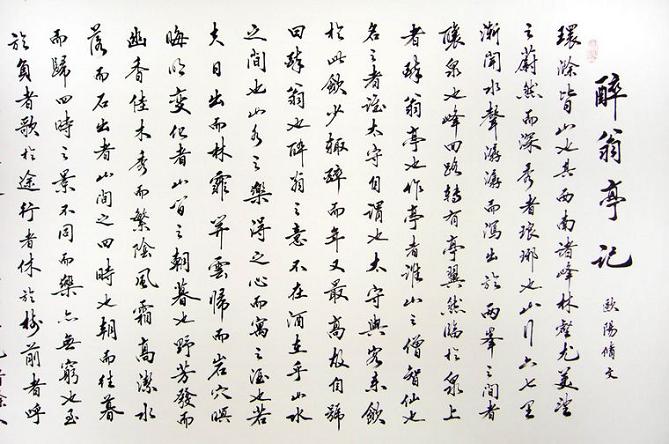 醉翁亭記
歐陽脩文
環滁皆山也其西南諸峰林壑尤美望
之蔚然而深秀者琅琊也山行六七里
漸聞水聲潺潺而瀉出於兩峯之間者
釀泉也峰回路轉有亭翼然臨於泉上
者醉翁亭也作亭者誰山之僧智仙也
名之者誰太守自謂也太守與客來飲
於此飲少輒醉而年又最高故自號
曰醉翁也醉翁之意不在酒在乎山水
之間也山水之樂得之心而寓之酒也若
夫日出而林霏開雲歸而岩穴暝
晦明變化者山間之朝暮也野芳發而
幽香佳木秀而繁陰風霜高潔水
落而石出者山間之四時也朝而往暮
而歸四時之景不同而樂亦無窮也至
於負者歌於途行者休於樹前者呼